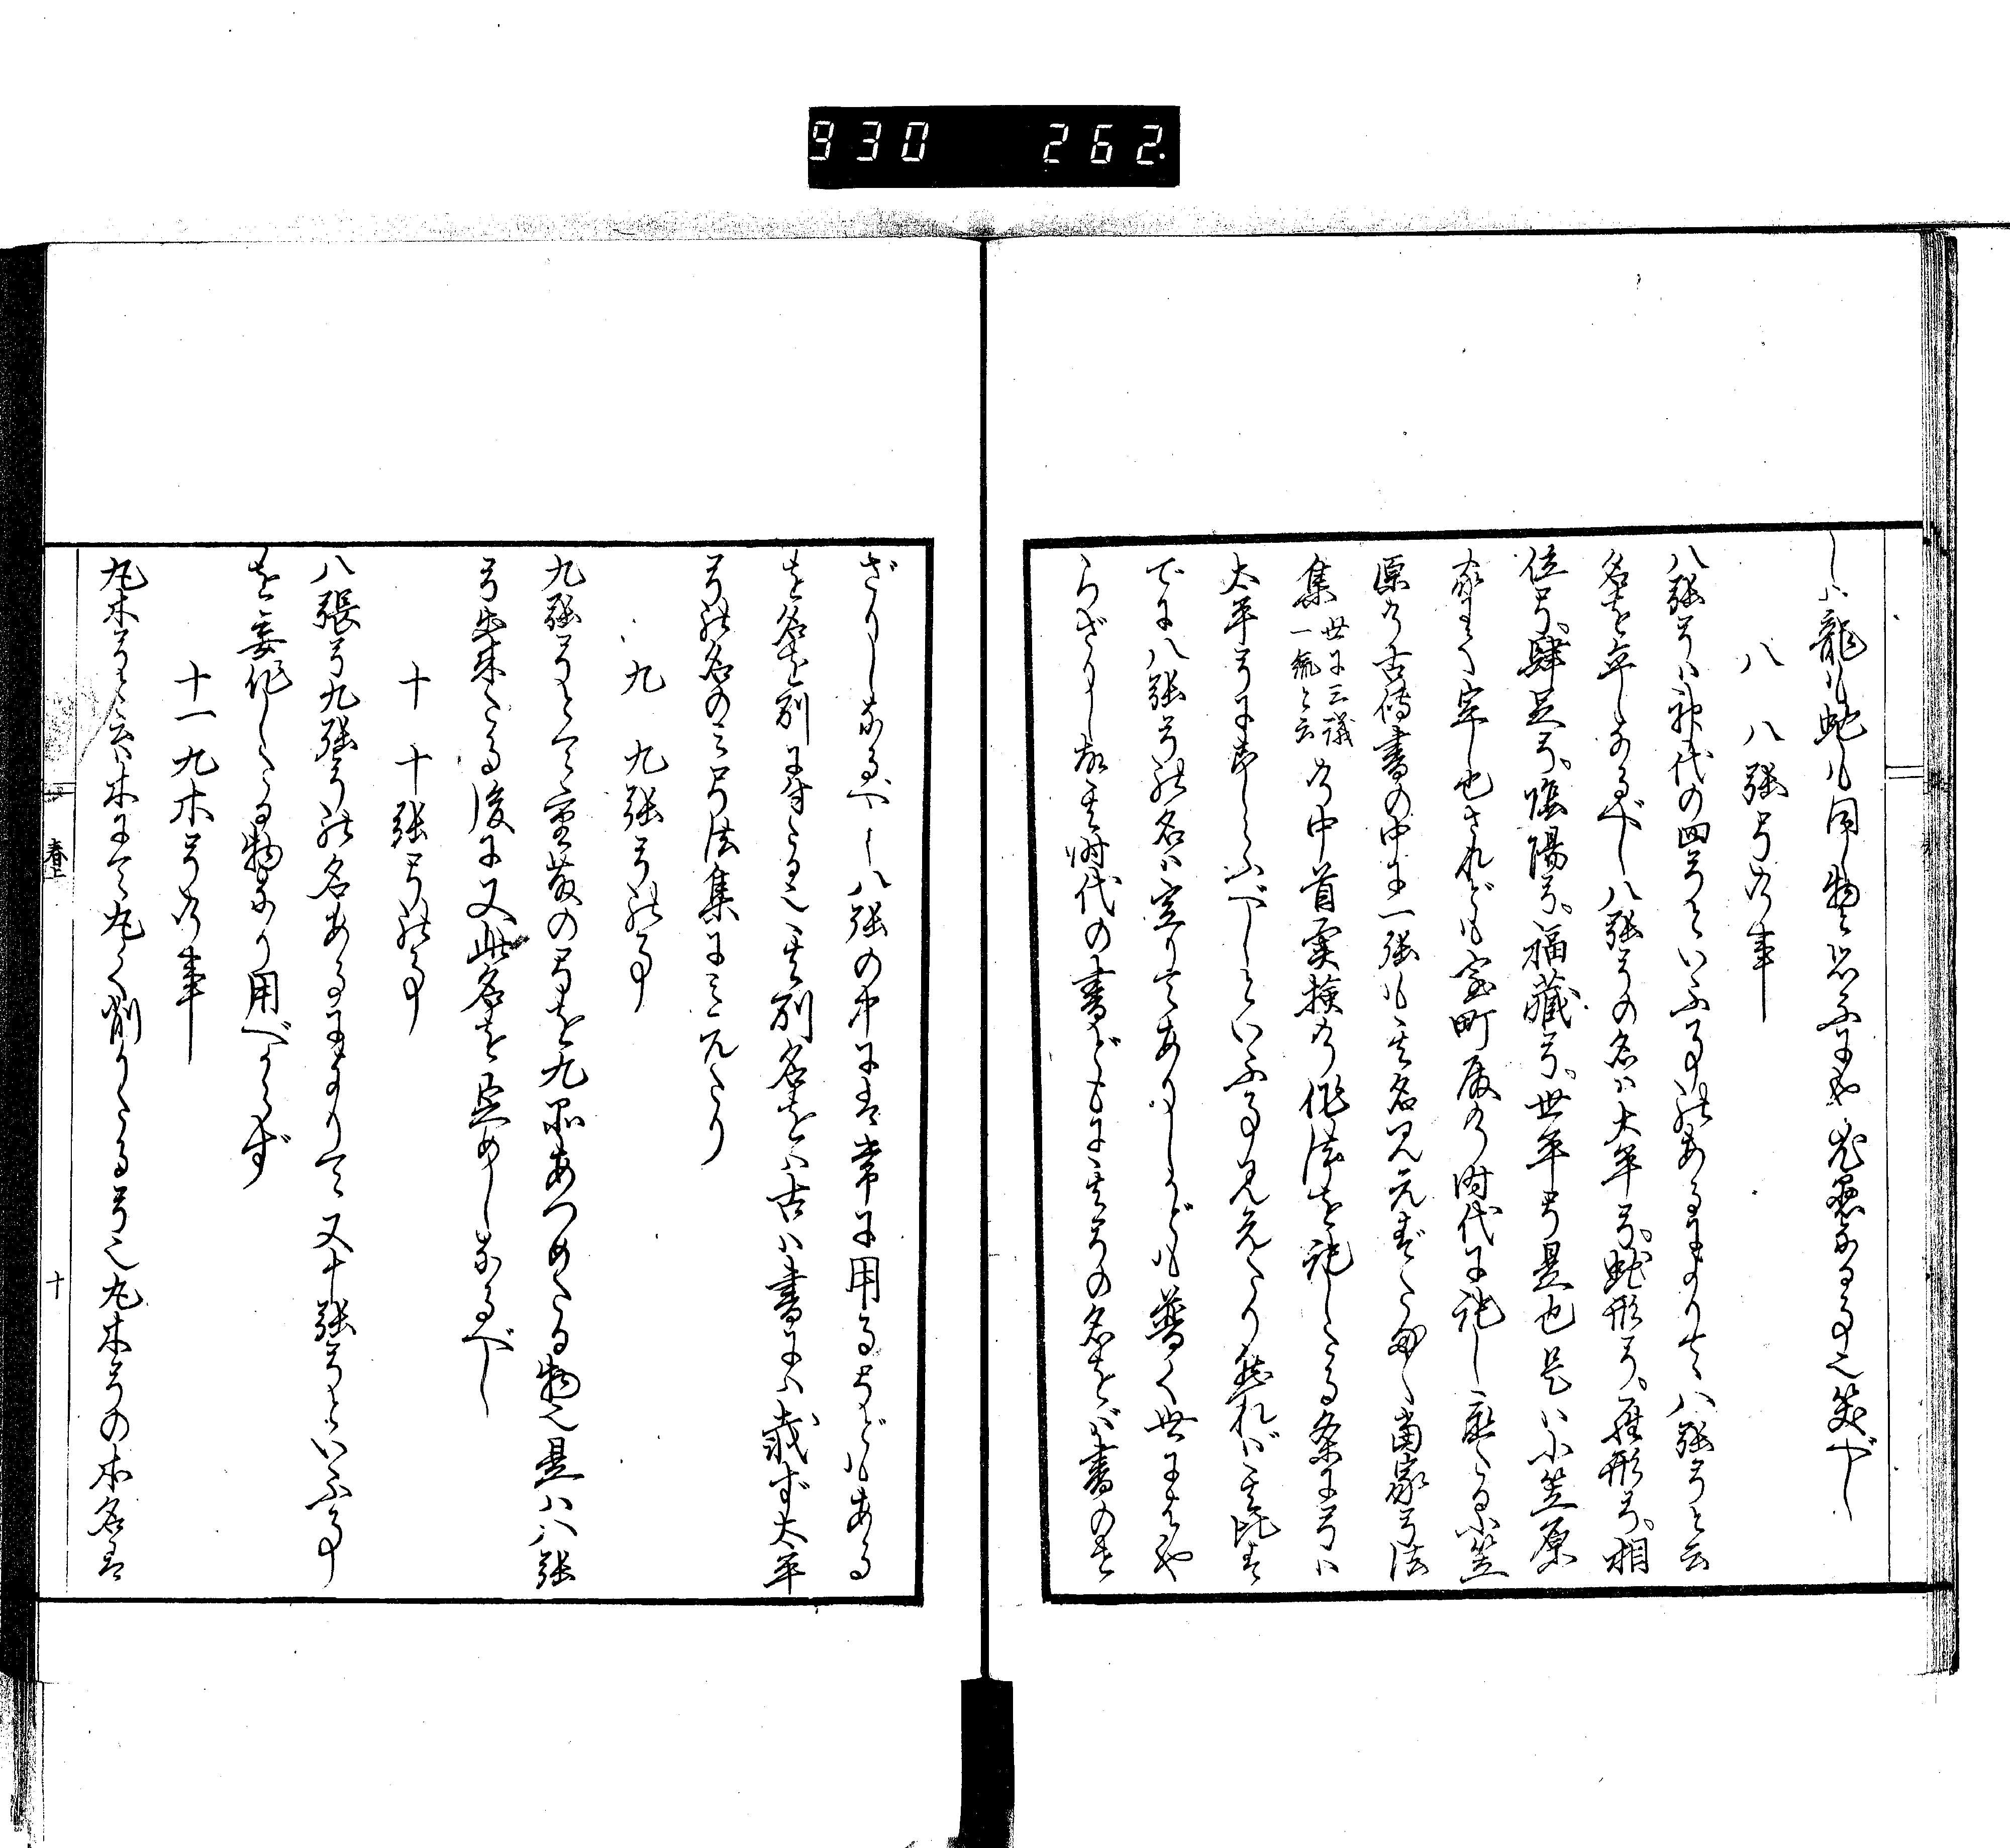 930 262.
しハ龍も蛇も同し物と思ふにや愚なる事也笑べし
八 八張弓の事
八張弓ハ神代の四弓といふ事のあるによりて八張弓と云
名を立しなるべし八張弓の名ハ太平弓。蛇形弓。雁形弓。相
位弓。肆足弓。陰陽弓。福藏弓。世平弓是也是ハ小笠原
家にて定し也されども室町殿の時代に記し置たる小笠
原の古傳書の中に一張も其名見えず たゞ當家弓法
集 世に三議一統と云 の中首実撿の作法を記したる条に弓ハ
太平弓にすべしといふ事見えたり然れば其比は
でに八張弓の名ハ定りてありしかども普く世にもや
らざりし故其時代の書どもに其弓の名をバ書のせ
ざりしなるべし八張の中には常に用る弓どもある
を名を別に付たる也其別名をハ古ハ書にハ載ず太平
弓の名のミ弓法集に見えたり
九 九張弓の事
九張弓とて重藤の弓を九品あつめたる物也是ハ八張
弓出来たる後に又此名を定めしなるべし
十 十張弓の事
八張弓九張弓の名あるによりて又十張弓といふ事
を妄作したる物なり用べからず
十一 丸木弓の事
丸木弓と云ハ木にて丸く削りたる弓也丸木弓の本名は
春上
十